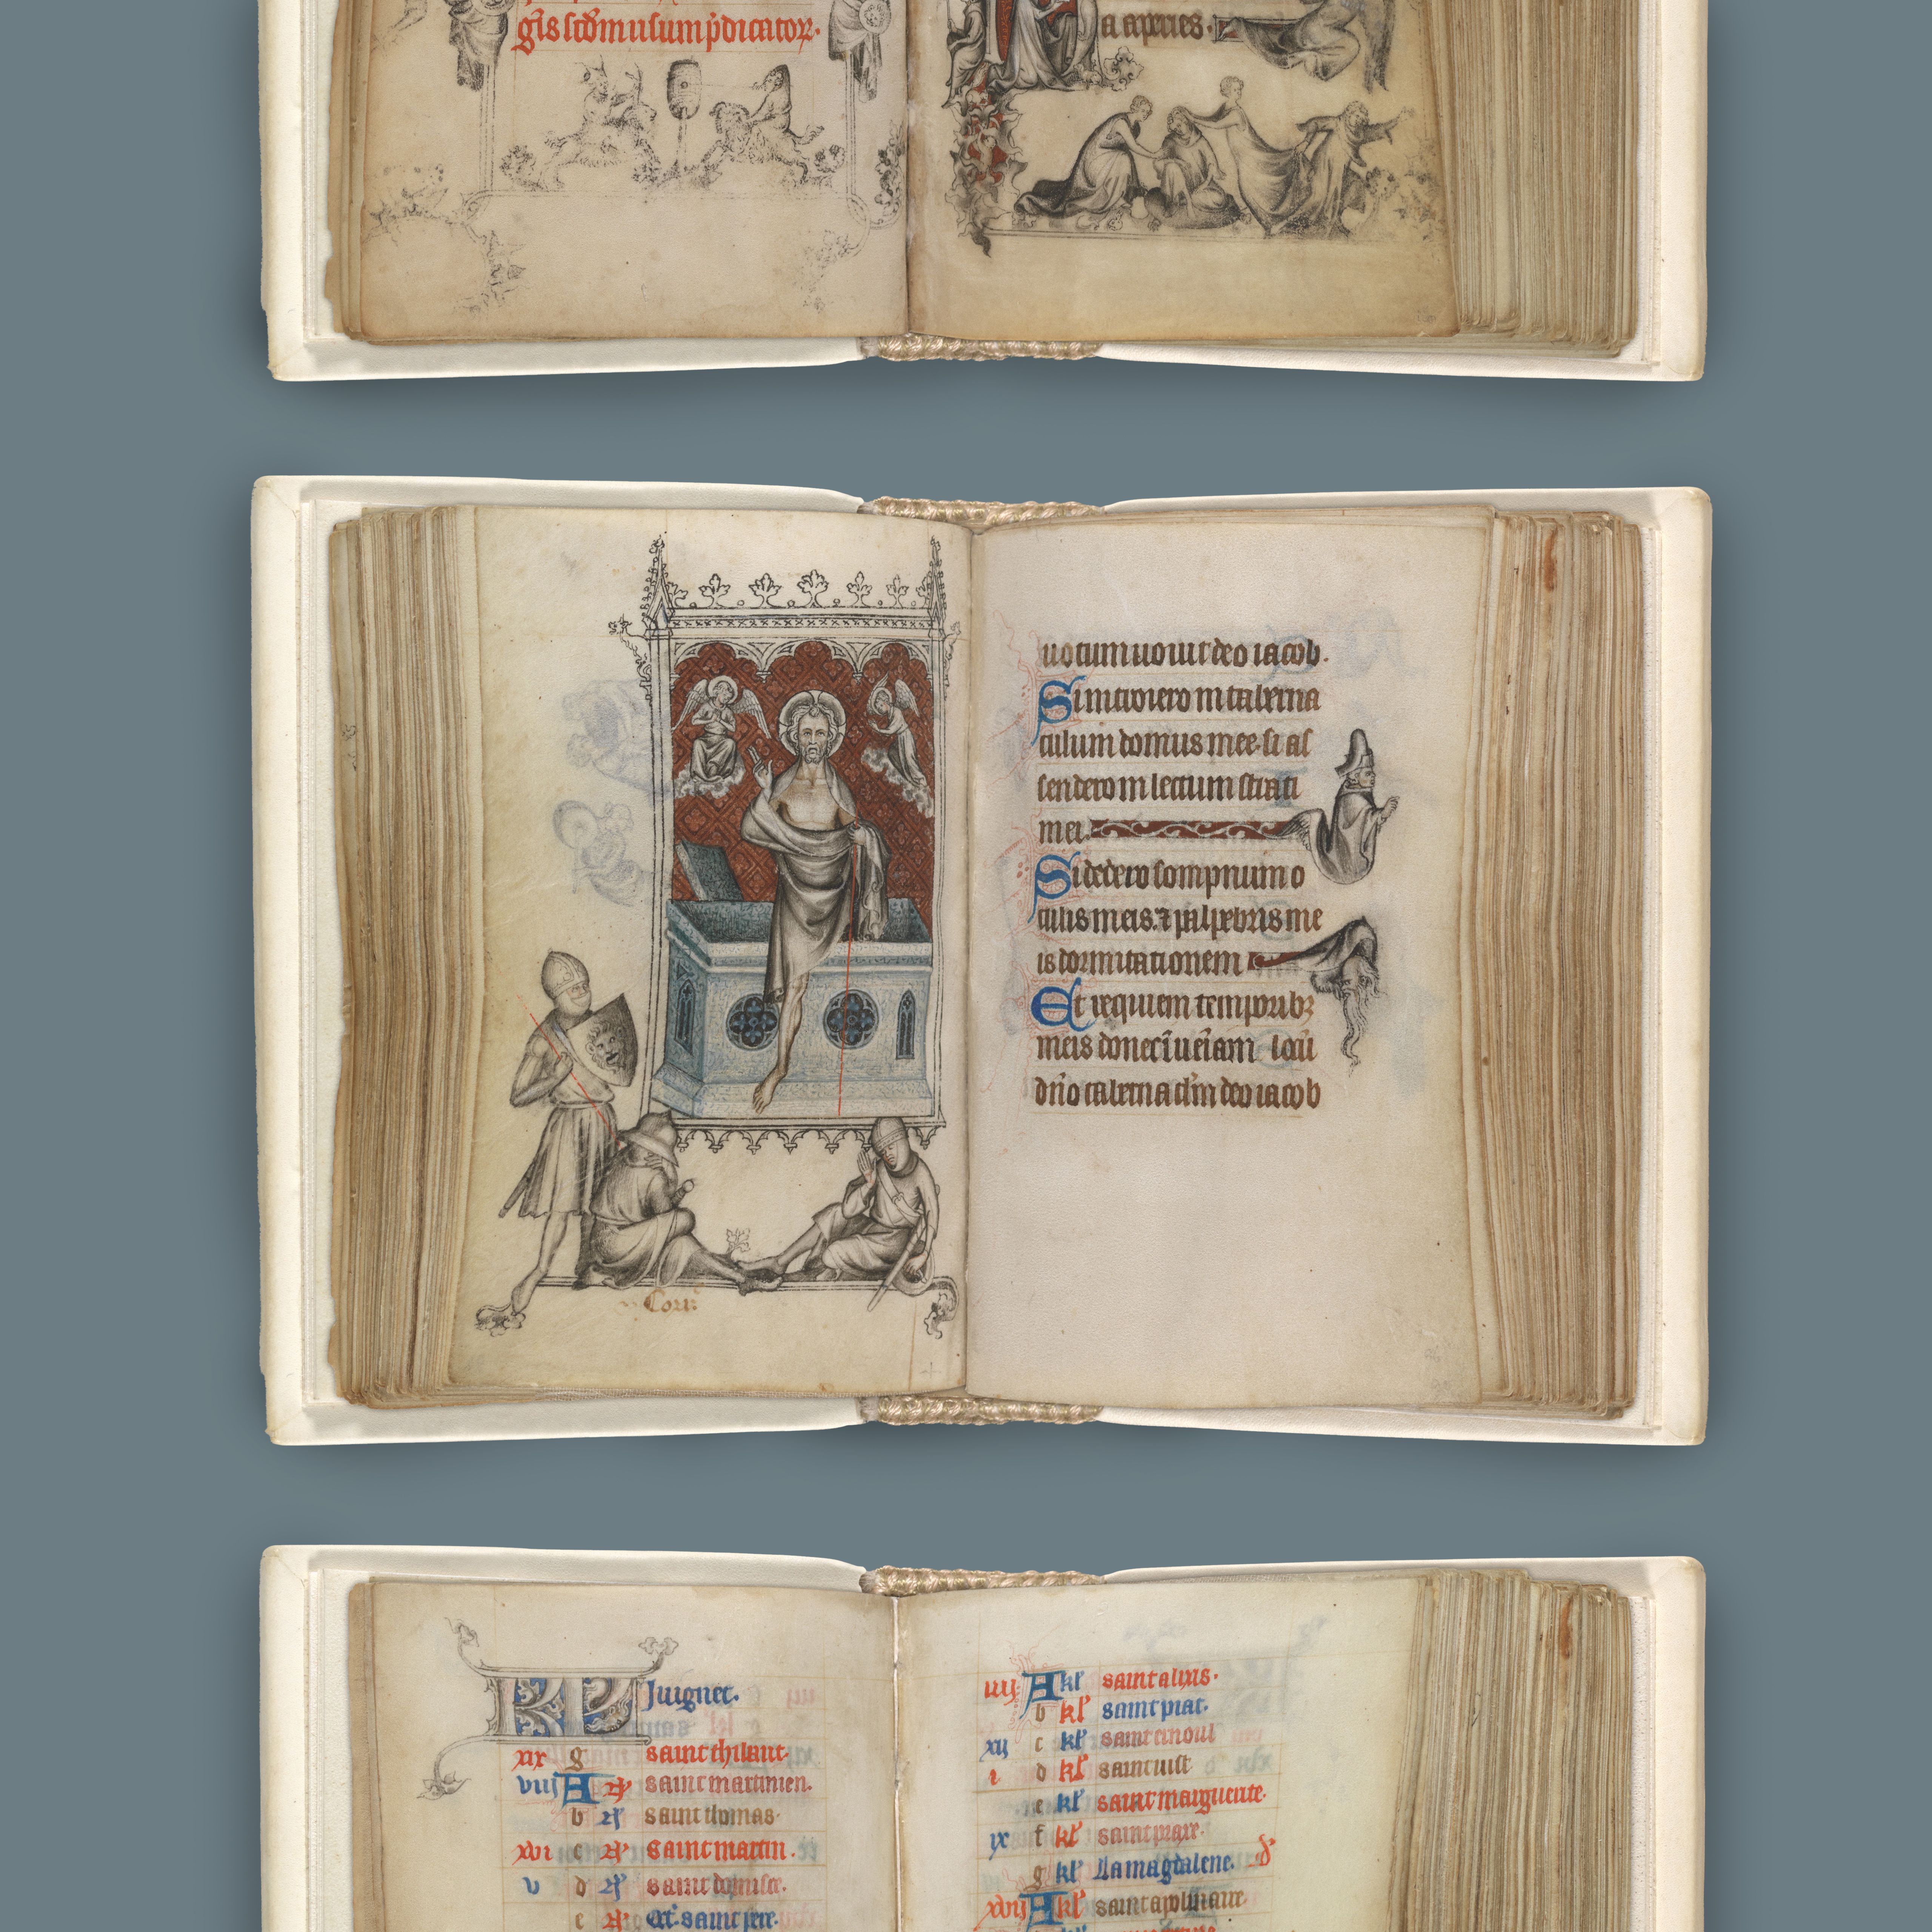 gis scdm usum p̄dicatoꝝ.
a apries.
uotum uouit deo iacob.
Si introiero in taberna
culum domus mee. si as
cendero in lectum strati
mei.
Si dedero sompnum o
culis meis. ⁊ palpebris me
is dormitationem
Et requiem temporibꝫ
meis donec īueīam locū
dn̄o tabernaclm̄ deo iacob
KL Juignet.
xix g saint thibaut.
viij A saint martinien.
b saint thomas.
xvi c saint martin.
v d
e Oct. saint pere.
iiij A kl saint alexis.
b kl saint piat.
xij c kl saint ernoul
i d kl saint iust
e kl saint marguerite.
ix f kl saint praxe.
g kl La magdalene.
xvij A kl saint apolinaire.